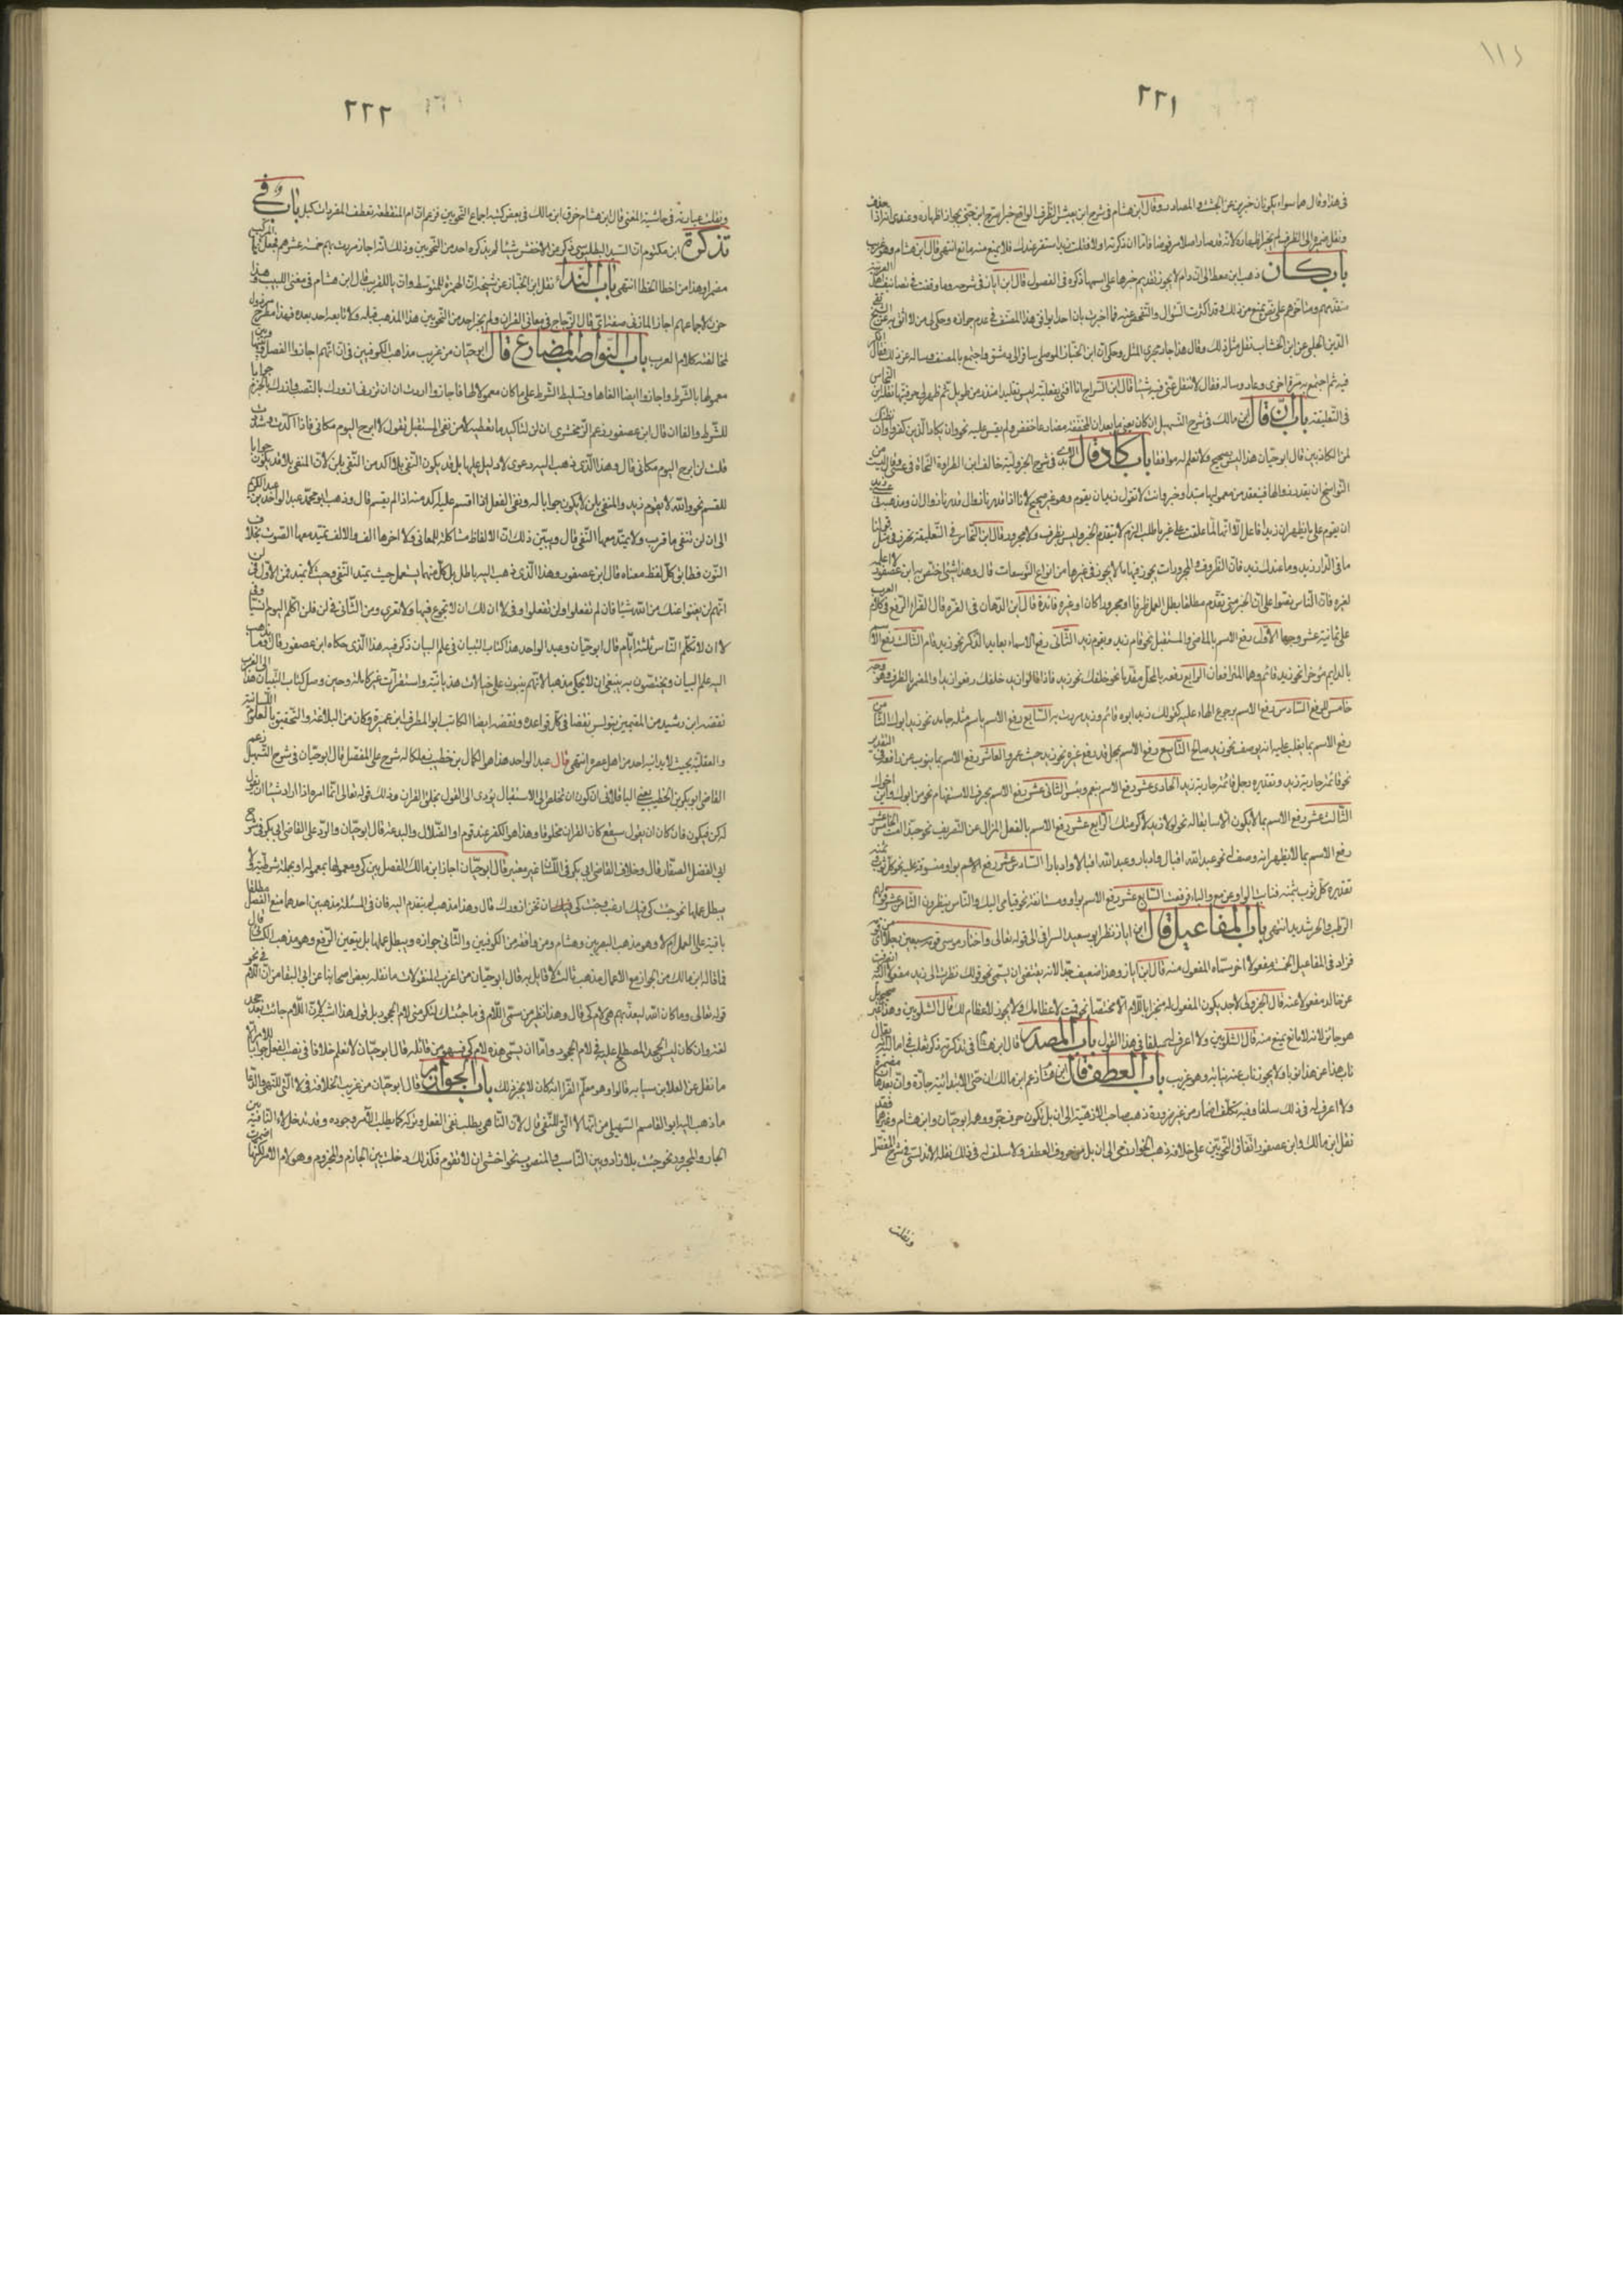 ١١٤
٢٢١
في هذا وقال هما سواء يكونان خبرين عن الجثث والمصادر وقال ابن هشام في شرح ابن يعيش الظرف الواقع خبرا صرح ابن جني بجواز اظهاره وعندي انه اذا حذف
ونقل ضميره الى الظرف لم يجز اظهاره لانه قد صار اصلا مرفوضا فاما ان ذكرته اولا فقلت زيد استقر عندك فلا يمنع منه مانع انتهى قال ابن هشام وهو غريب
باب كان ذهب ابن معط الى ان دام لا يجوز تقديم خبرها على اسمها ذكره في الفصول قال ابن اياز في شرحه وما وقفت في تصانيف اهل العربية
متقدمهم ومتأخرهم على نص يمنع من ذلك وقد اكثرت السؤال والتفحص عنه فما اخبرت بان احدا يوافق هذا المصنف في عدم جوازه وحكى لي من لا اتق به عن الشيخ تقي
الدين الحلي عن ابن الخشاب نقل مثل ذلك وقال هذا جار مجرى المثل وحكى ان ابن الخباز الموصلي سافر الى دمشق واجتمع بالمصنف وساله عن ذلك فقال افكر
فيه ثم اجتمع به مرة اخرى وعاد وساله فقال لا تنقل عني فيه شيئا قال ابن السراج انا افتي بفعلية ليس تقليدا منذ زمن طويل ثم ظهر لي حرفيتها نقله ابن النحاس
في التعليقة باب ان قال ابن مالك في شرح التسهيل ان كان بعض ما بعد ان المخففة مضارعا حفظ ولم يقس عليه نحو وان يكاد الذين كفروا وان نظنك
لمن الكاذبين قال ابو حيان هذا ليس بصحيح ولا نعلم له موافقا باب كاد قال في شرح الجزولية خالف ابن الطراوة النحاة في عسى وقال ليست من
النواسخ
ان يقوم على
ما في الدار زيد وما عندك زيد فان الظروف والمجرورات يجوز فيها ما لا يجوز في غيرها من انواع التوسعات قال وهذا شيء اختص به ابن عصفور لا اعلمه
لغيره فان الناس نصوا على ان الخبر متى تقدم مطلقا بطل العمل ظرفا او مجرورا كان او غيره فائدة قال ابن الدهان في الغرة قال الفراء الرفع في كلام العرب
على ثمانية عشر وجها الاول رفع الاسم بالماضي والمستقبل نحو قام زيد ويقوم زيد الثاني رفع الاسماء بعايد الذكر نحو زيد قام الثالث رفع الاسم
بالدايم مؤخرا نحو زيد قائم وهما المترافعان الرابع رفعه بالمحل مقدما نحو خلفك زيد
خامس للرفع السادس رفع الاسم برجوع الهاء عليه كقولك زيد ابوه قائم وزيد مررت به السابع رفع الاسم باسم مثله جامد نحو زيد ابوك الثامن
رفع الاسم بما يغلب عليه انه يوصف نحو زيد صالح التاسع رفع الاسم بمحل قد رفع غيره نحو زيد حيث عمرو العاشر رفع الاسم بما ينوب عن رافعه
نحو قائمة جاريته زيد وتقديره رجل قائمة جاريته زيد الحادي عشر رفع الاسم بنعم وبئس الثاني عشر رفع الاسم بحرف الاستفهام نحو من ابوك واين اخوك
الثالث عشر رفع الاسم بما لا يكون الا سابقا له نحو لولا زيد لاكرمتك الرابع عشر رفع الاسم بالفعل المزال عن التصريف نحو حبذا انت الخامس عشر
رفع الاسم بما لا يظهر انه وصف له نحو عبد الله اقبال وادبار وعبد الله اقبالا وادبارا السادس عشر رفع الاسم بواو منسوقة عليه نحو كل ثوب وثمنه
تقديره كل ثوب بثمنه فنابت الواو عن مع والباء فرفعت السابع عشر رفع الاسم بواو مستانفة نحو قيامي اليك والناس ينظرون الثامن عشر قولهم
الرطب والحر شديد انتهى باب المفاعيل قال ابن اياز نظر ابو سعيد السيرافي الى قوله تعالى واختار موسى قومه سبعين رجلا اي من قومه
فزاد في المفاعيل الخمسة مفعولا اخر سماه المفعول منه قال ابن اياز وهذا ضعيف جدا لانه يقتضي ان يسمى نحو قولك نظرت الى زيد مفعولا اليه وانصرفت
عن خالد مفعولا عنه قال الجزولي لا جد يكون المفعول له منجرا باللام الا مختصا نحو قمت لاعظامك ولا يجوز لاعظام لك قال الشلوبين وهذا غير صحيح بل
هو جائز لانه لا مانع يمنع منه قال الشلوبين ولا اعرف له سلفا في هذا القول باب المصدر قال ابن هشام في تذكرته ذكر ثعلب في اماليه انه يقال
ناب هذا عن هذا نوبا ولا يجوز ناب عنه نيابة وهو غريب باب العطف قال ابن هشام زعم ابن مالك ان حتى الابتدائية جارة وان بعدها ان مضمرة
ولا اعرف له في ذلك سلفا وفيه تكلف اضمار من غير ضرورة ذهب صاحب الازهية الى ان بل تكون حرف جر ووهمه ابو حيان وابن هشام وغيرهما فقد
نقل ابن مالك وابن عصفور اتفاق النحويين على خلافه ذهب الخوارزمي الى ان بل من حروف العطف ولا سلف له في ذلك نقله الاندلسي في شرح المفصل
ونقلت
٢٢٢
ونقلت عبارته في حاشية المغني قال ابن هشام خرق ابن مالك في بعض كتبه اجماع النحويين فزعم ان ام المنقطعة تعطف المفردات كبل باب في
تذكرة ابن مكتوم ان السيد البطليوسي ذكر عن الاخفش شيئا لم يذكره احد من النحويين وذلك انه اجاز مررت بهم خمسة عشرهم فجعل
مضمرا وهذا من اخطا الخطا انتهى باب النداء نقل ابن الخباز عن شيخه ان الهمزة للمتوسط وان يا للقريب قال ابن هشام في مغني اللبيب وهذا
خرق لاجماعهم اجاز المازني قال الزجاج في معاني القران ولم يجز احد من النحويين هذا المذهب قبله ولا تابعه احد بعده فهذا مطرح مرذول
لمخالفته كلام العرب باب النواصب للمضارع قال ابو حيان من غريب مذاهب الكوفيين في ان انهم اجازوا الفصل بينها وبين
معمولها بالشرط واجازوا ايضا الغاها وتسليط الشرط على ما كان معمولا لها فاجازوا اردت ان ان تزرني ازورك بالنصب وازرك بالجزم جوابا
للشرط والغا ان قال ابن عصفور زعم الزمخشري ان لن لتاكيد ما تعطيه لا من نفي المستقبل تقول لا ابرح اليوم مكاني فاذا اكدت وشددت
قلت لن ابرح اليوم مكاني قال وهذا الذي ذهب اليه دعوى لا دليل عليها بل قد يكون النفي بلا اكد من النفي بلن لان المنفي بلا قد يكون جوابا
للقسم نحو والله لا يقوم زيد والمنفي بلن لا يكون جوابا له ونفي الفعل اذا اقسم عليه اكد منه اذا لم يقسم قال وذهب ابو محمد عبد الواحد بن عبد الكريم
الى ان لن تنفي ما قرب ولا يمتد معها النفي قال ويبين ذلك ان الالفاظ مشاكلة للمعاني ولا اخرها الف والالف يمتد معها الصوت بخلاف
النون فطابق كل لفظ معناه قال ابن عصفور وهذا الذي ذهب اليه باطل بل كل منهما يستعمل حيث يمتد النفي وحيث لا يمتد فمن الاول في لن
انهم لن يغنوا عنك من الله شيئا فان لم تفعلوا ولن تفعلوا وفي لا ان لك ان لا تجوع فيها ولا تعرى ومن الثاني في لن فلن اكلم اليوم انسيا وفي
لا ان لا تكلم الناس ثلثة ايام قال ابو حيان وعبد الواحد هذا كتاب التبيان في علم البيان ذكر فيه هذا الذي حكاه ابن عصفور
اليه علم البيان ويختصون به ينبغي ان لا يحكى مذهبا لانهم يبنون على خيالات هذيانية واستقرآت غير كاملة وحين وصل كتاب التبيان هذا الى الغرب
نقضه ابن رشيد من المقيمين بتونس نقضا في كل قواعده ونقضه ايضا الكاتب ابو المطرف ابن عميرة وكان من البلاغة والتحقيق بالعلوم اللسانية
والعقلية بحيث لا يدانيه احد من اهل عصره انتهى قال عبد الواحد هذا هو الكمال بن خطيب زملكا له شرح على المفصل قال ابو حيان في شرح التسهيل زعم
القاضي ابو بكر بن الطيب يعني الباقلاني ان كون ان تخلص الى الاستقبال يؤدي الى القول بخلق القران وذلك قوله تعالى انما امره اذا اراد شيئا ان يقول
له كن فيكون فان كان ان يقول سيقع كان القران مخلوقا وهذا هو الكفر عند قوم او الضلال والبدعة قال ابو حيان والرد على القاضي ابي بكر في شرح
ابي الفضل الصفار قال وخلاف القاضي ابي بكر في اللسان غير معتبر قال ابو حيان اجاز ابن مالك الفصل بين كي ومعمولها بمعموله او بجملة شرطية ولا
يبطل عملها نحو جئت كي فيك ارغب وجئت كي ان تحسن ازورك قال وهذا مذهب لم يتقدم اليه فان في المسئلة مذهبين احدهما منع الفصل مطلقا
باقية على العمل ام لا وهو مذهب البصريين وهشام ومن وافقه من الكوفيين والثاني جوازه ويبطل عملها بل يتعين الرفع وهو مذهب الكسائي قال
فما قاله ابن مالك من الجواز مع الاعمال مذهب ثالث لا قايل به قال ابو حيان من اغرب المنقولات ما نقله بعض اصحابنا عن ابي البقا من ان اللام في نحو
قوله تعالى وما كان الله ليعذبهم هي لام كي قال وهذا نظير من سمى اللام في ما جئتك لتكرمني لام الجحود بل قول هذا اشبه لان اللام جاءت بعد جحد
لغة وان كان ليس الجحد المصطلح عليه في لام الجحود واما ان يسمى هذه لام كي فسهو من قائله قال ابو حيان لا نعلم خلافا في نصب الفعل جوابا للامر الا
ما نقل عن العلا بن سيابة قالوا وهو معلم الفراء انه كان لا يجيز ذلك باب الجوازم قال ابو حيان من غريب الخلاف في لا التي للنهي والدعا
ما ذهب اليه ابو القاسم السهيلي من انها لا التي للنفي قال لان الناهي يطلب نفي الفعل وتركه كما يطلب الآمر وجوده وقد تدخل لا النافية بين
الجار والمجرور نحو جئت بلا زاد وبين الناصب والمنصوب نحو اخشى ان لا تقوم فكذلك دخلت بين الجازم والمجزوم وهو لام الامر لكنها اضمرت